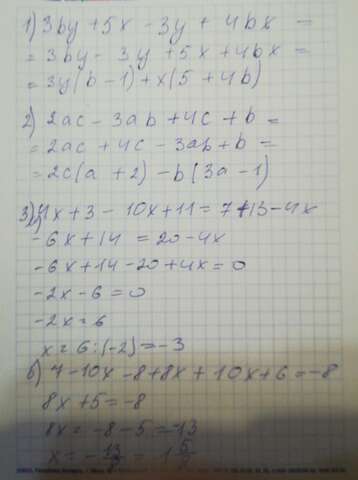 1) 3by + 5x - 3y + 4bx =
= 3by - 3y + 5x + 4bx =
= 3y(b - 1) + x(5 + 4b)
2) 2ac - 3ab + 4c + b =
= 2ac + 4c - 3ab + b =
= 2c(a + 2) - b(3a - 1)
3) 4x + 3 - 10x + 11 = 7 + 13 - 4x
-6x + 14 = 20 - 4x
-6x + 14 - 20 + 4x = 0
-2x - 6 = 0
-2x = 6
x = 6 : (-2) = -3
б) 7 - 10x - 8 + 8x + 10x + 6 = -8
8x + 5 = -8
8x = -8 - 5 = -13
x = - 13/8 = - 1 5/8